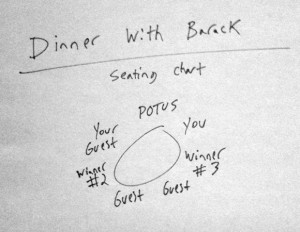 Dinner With Barack
Seating chart
POTUS
Your
Guest
You
Winner
#2
Winner
#3
Guest
Guest